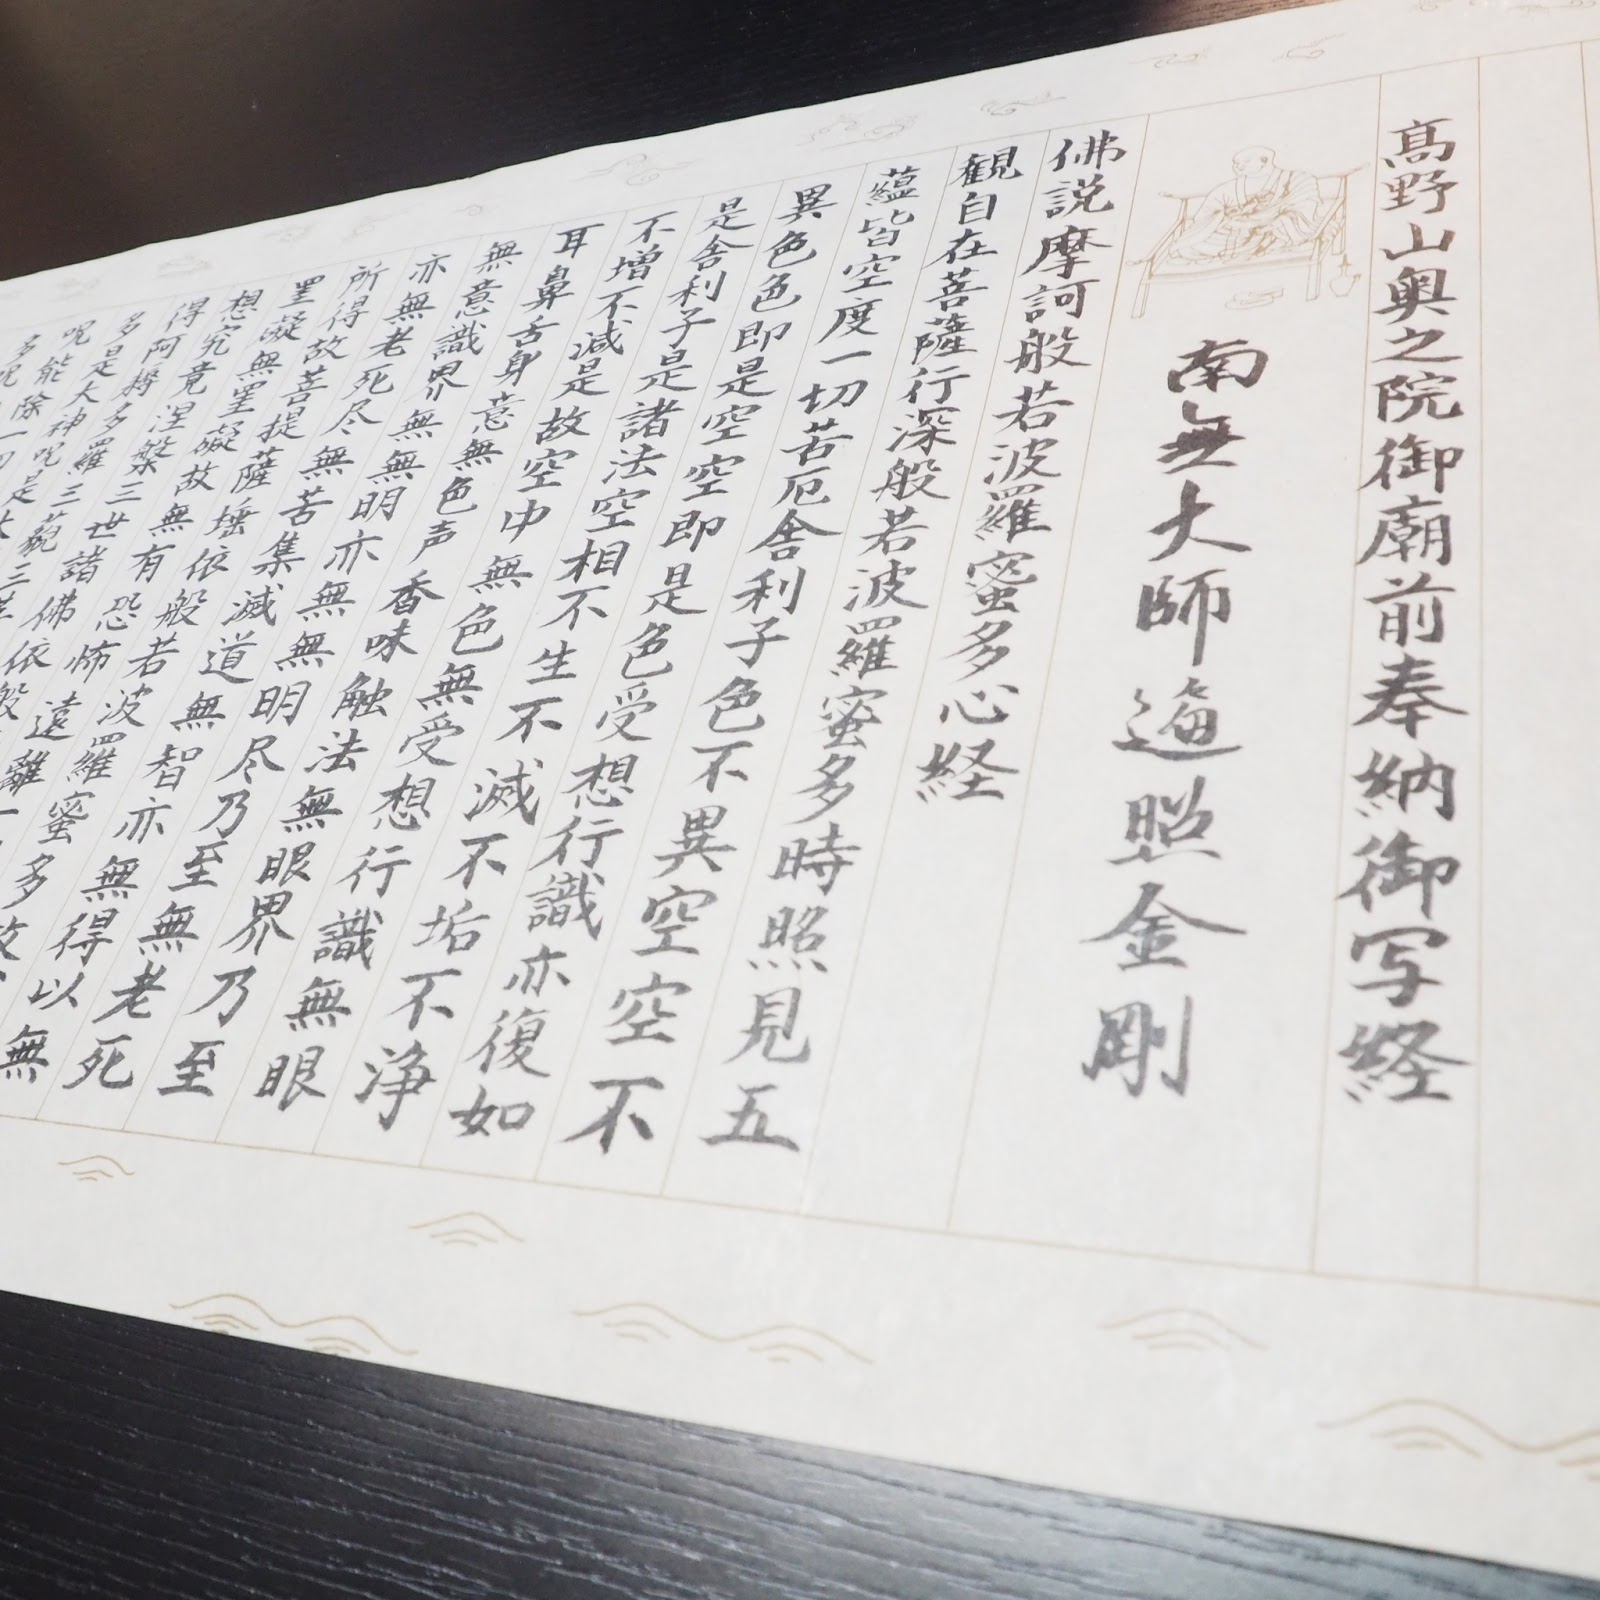 髙野山奥之院御廟前奉納御写経
南無大師遍照金剛
佛説摩訶般若波羅蜜多心経
観自在菩薩行深般若波羅蜜多時照見五
蘊皆空度一切苦厄舎利子色不異空空不
異色色即是空空即是色受想行識亦復如
是舎利子是諸法空相不生不滅不垢不浄
不増不減是故空中無色無受想行識無眼
耳鼻舌身意無色声香味触法無眼界乃至
無意識界無無明亦無無明尽乃至無老死
亦無老死尽無苦集滅道無智亦無得以無
所得故菩提薩埵依般若波羅蜜多故
罣礙無罣礙故無有恐怖遠離一
想究竟涅槃三世諸佛依般
得阿耨多羅三藐三
多是大神呪是大
呪能除一切
多呪